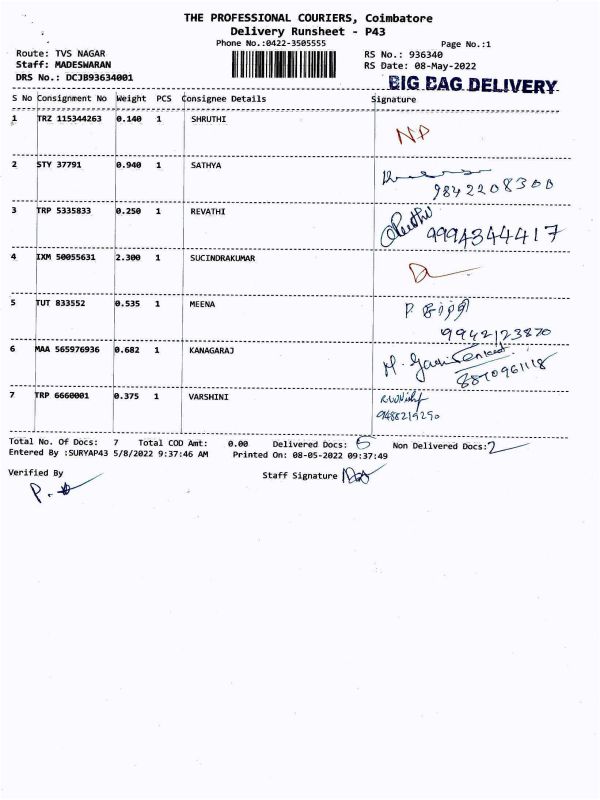 THE PROFESSIONAL COURIERS, Coimbatore
Delivery Runsheet - P43
Phone No.:0422-3505555
Page No.:1
Route: TVS NAGAR
RS No.: 936340
Staff: MADESWARAN
RS Date: 08-May-2022
DRS No.: DCJB93634001
BIG BAG DELIVERY
S No Consignment No Weight PCS Consignee Details Signature
1 TRZ 115344263 0.140 1 SHRUTHI
NP
2 STY 37791 0.940 1 SATHYA
9842208300
3 TRP 5335833 0.250 1 REVATHI
Revathi 9994344417
4 IXM 50055631 2.300 1 SUCINDRAKUMAR
5 TUT 833552 0.535 1 MEENA
9942123870
6 MAA 565976936 0.682 1 KANAGARAJ
8870961118
7 TRP 6660001 0.375 1 VARSHINI
9488219290
Total No. Of Docs: 7 Total COD Amt: 0.00 Delivered Docs: Non Delivered Docs: 2
Entered By :SURYAP43 5/8/2022 9:37:46 AM Printed On: 08-05-2022 09:37:49
Verified By
Staff Signature